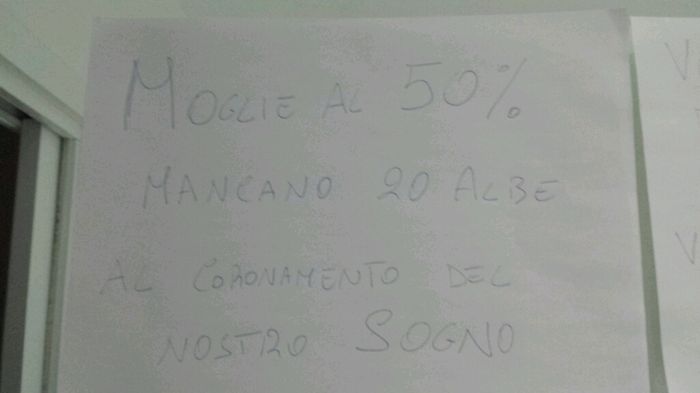 MOGLIE AL 50%
MANCANO 20 ALBE
AL CORONAMENTO DEL
NOSTRO SOGNO